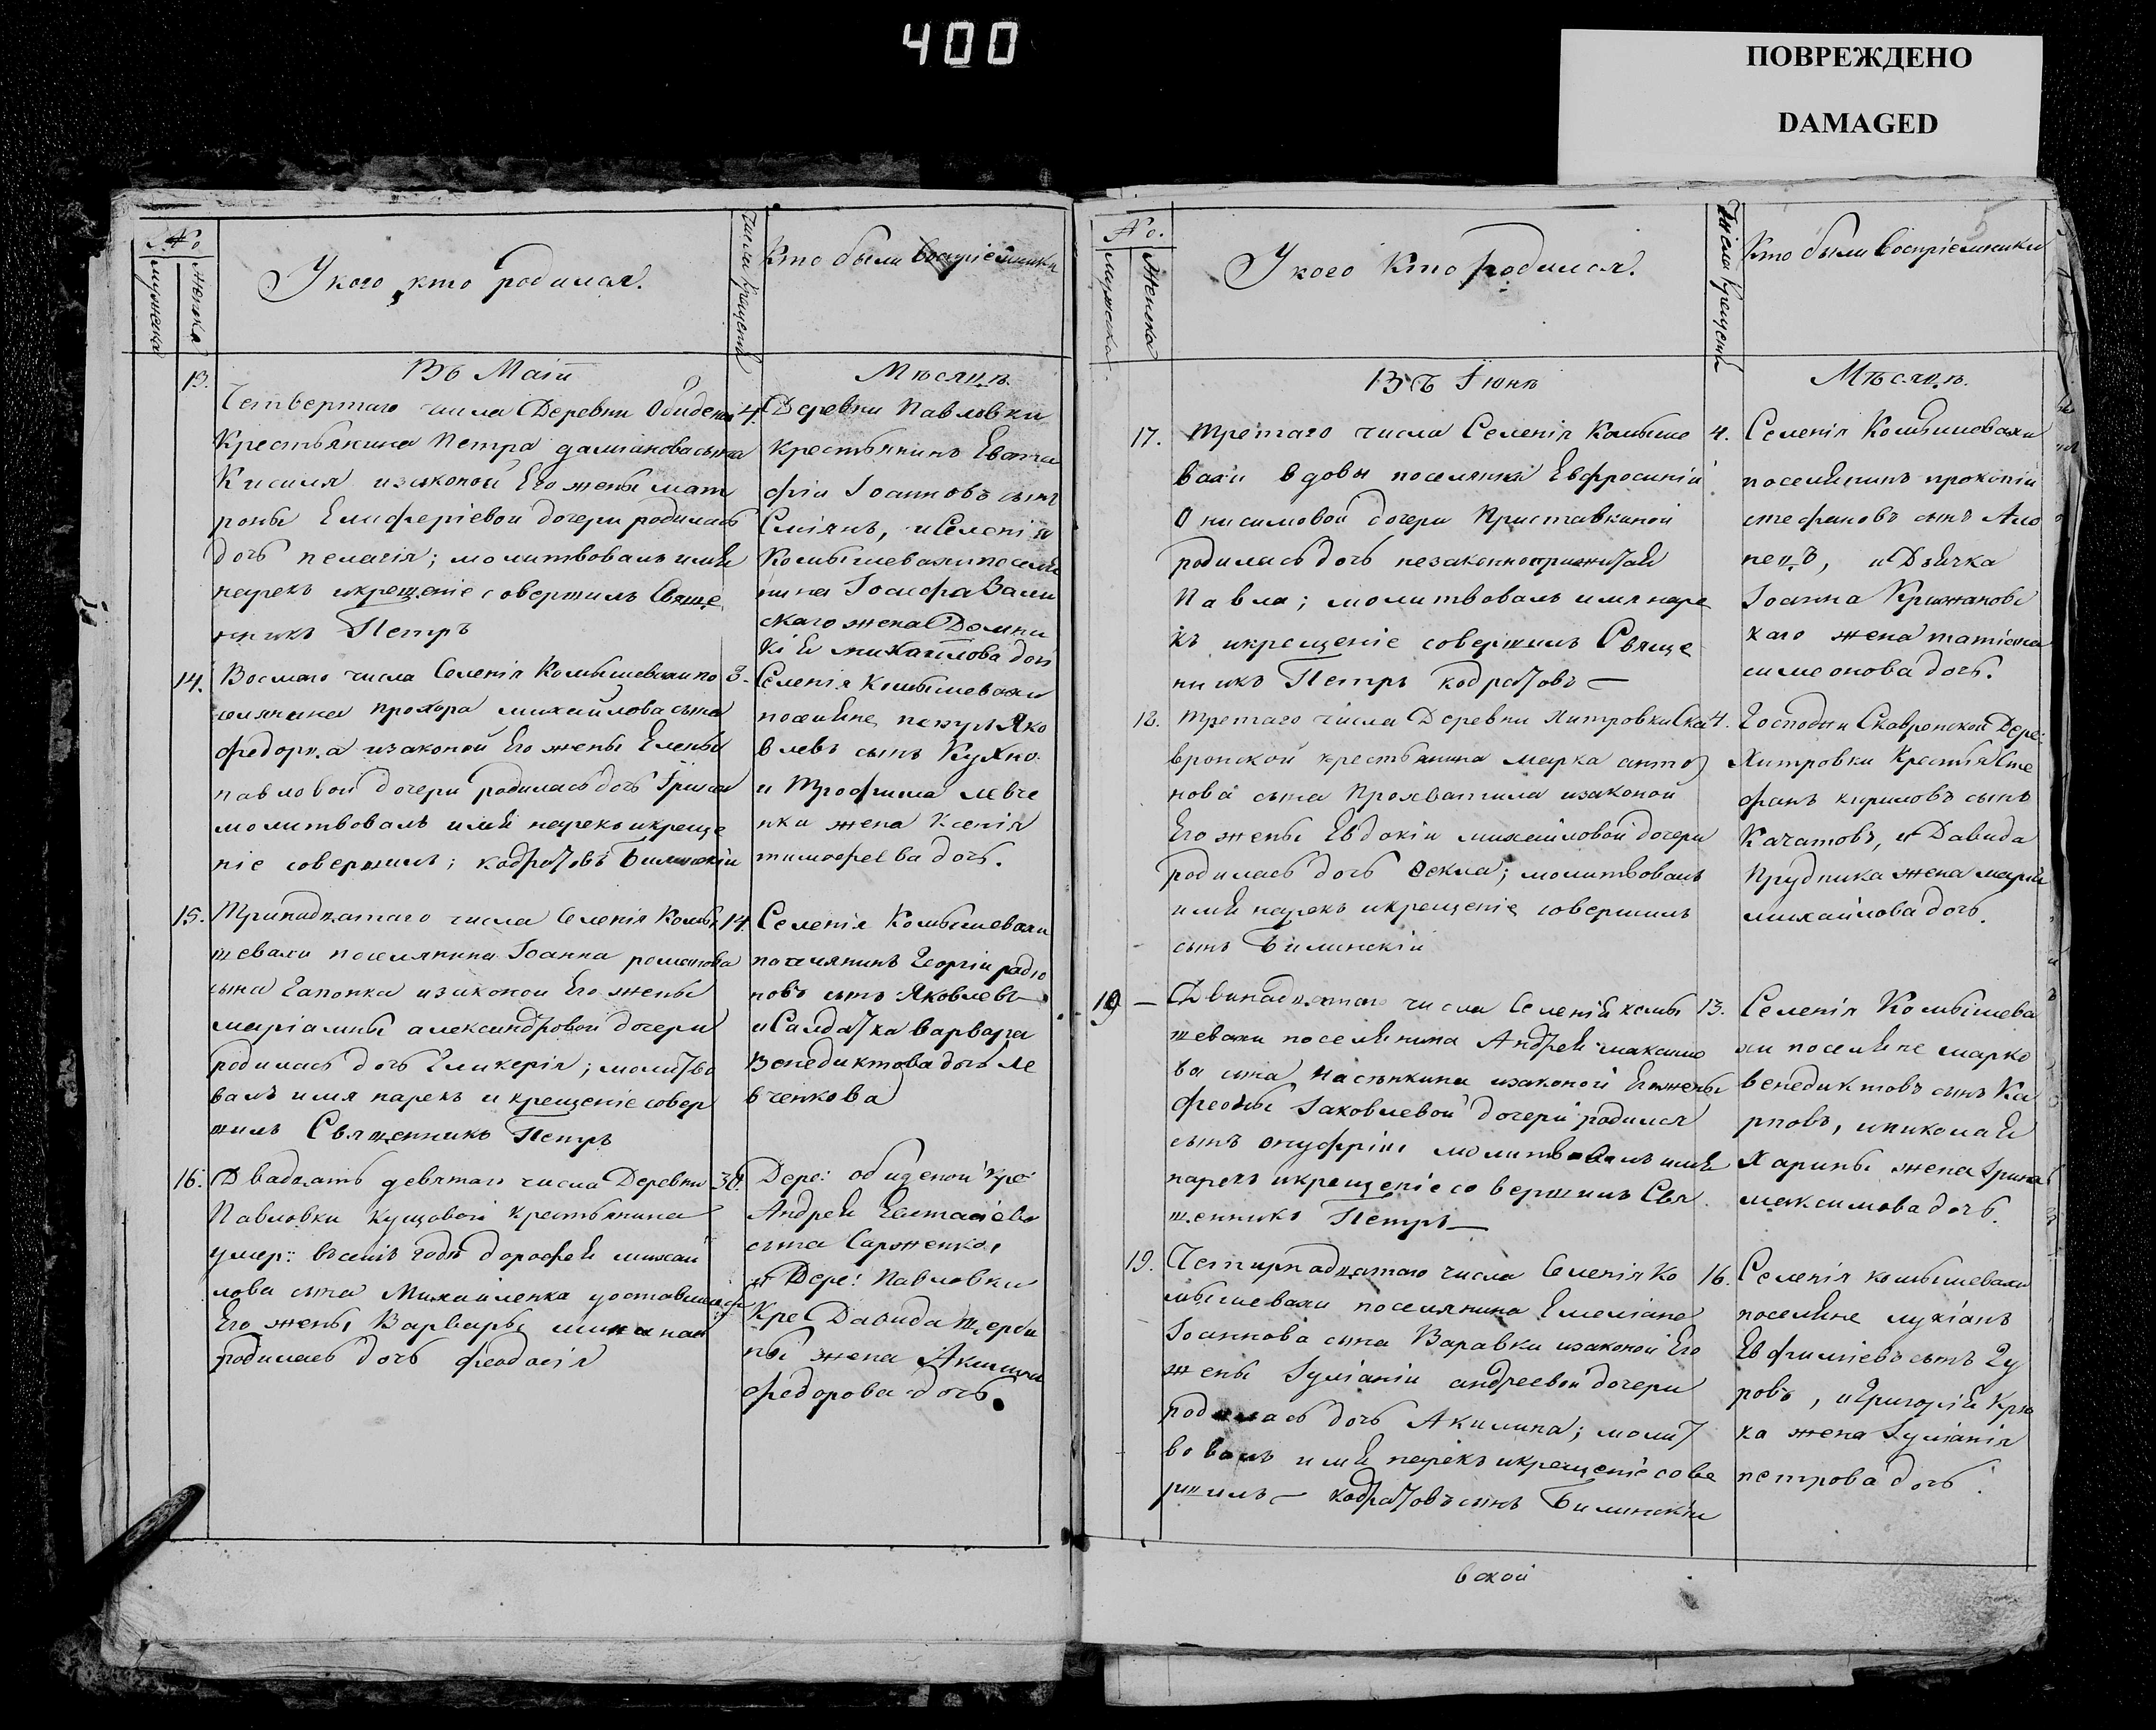 400
ПОВРЕЖДЕНО
DAMAGED
№
мужеска
женска
У кого кто родился.
Числа крещенія
Кто были воспріемники
Въ Маіи
Мѣсяцѣ
13.
Четвертаго числа Деревни Обидено
Крестьянина Петра даміянова сына
Кисиля изаконой Его жены мат
роны Елиферіевой дочери родилась
дочь пелагія; молитвовалъ имя
нарекъ икрещеніе совершилъ Свяще
нникъ Петръ
4.
Деревни Павловки
крестьянинъ Евста
фіи Іоанновъ сынъ
и Селенія
Комышевахи поселя
нина Іоасафа
скаго жена Домни
кія михаилова дочь
14.
Восмаго числа Селенія Комышевахи по
селянина прохора михайлова сына
федорца изаконой Его жены Елены
павловой дочери родилась дочь Ірина
молитвовалъ имя нарекъ икреще
ніе совершилъ;
Селенія Комышевахи
Яко
влевъ сынъ Кухно
и Трофима левче
нка жена Ксенія
тимофеева дочь.
15.
Тринадцатаго числа Селенія Комы
шевахи поселянина Іоанна романова
сына Гапонка изаконой Его жены
маріамны александровой дочери
родилась дочь Гликерія; молитво
валъ имя нарекъ и крещеніе совер
шилъ Священникъ Петръ
14.
Селенія Комышевахи
поселянинъ Георгіи радіо
новъ сынъ Яковлевъ
и Салдатка варвара
Венедиктова дочь Ле
вченкова
16.
Двадцать девятаго числа Деревни
Павловки Кущовой крестьянина
умер: въ семъ годѣ дорофея михай
лова сына Михайленка уоставшейся
Его жены Варвары
родилась дочь феодосія
30.
Дере: обиденой кре
Андрей Евстафіевъ
сына Сарженко,
и Дере: Павловки
Кре Давида щерби
ны жена Акилина
федорова дочь.
№.
мужеска
Женска
У кого Кто родился.
Числа крещенія
Кто были воспріемники
5
Въ Іюнѣ
Мѣсяцѣ.
17.
третаго числа Селенія Комыше
вахи вдовы поселянки Евфросиніи
Онисимовой дочери Приставкиной
родилась дочь незаконноприжитая
Павла; молитвовалъ имя наре
къ икрещеніе совершилъ Свяще
нникъ Петръ кодратовъ —
4.
Селенія Комышевахи
поселянинъ прокопій
стефановъ сынъ
и Дьячка
Іоанна Крыжановс
каго жена татіана
симеонова дочь.
18.
третаго числа Деревни Хитровки Ска
вронской крестьянина марка анто
нова сына Прохватила изаконой
Его жены Евдокіи михайловой дочери
родилась дочь Өекла; молитвовалъ
имя нарекъ икрещеніе совершилъ
сынъ Билинскій
4.
Господжи Скавронской Дере:
Хитровки Крестья Сте
фанъ кириловъ сынъ
Качатовъ, и Давида
Прудника жена марія
михайлова дочь.
19 —
Двинадцатаго числа Селенія комы
шевахи поселянина Андрея максимо
ва сына изаконой Его жены
Іаковлевой дочери родился
сынъ онуфрій молитвовалъ имя
нарекъ икрещеніе совершилъ Свя
щенникъ Петръ —
13.
Селенія Комышева
хи поселяне марко
венедиктовъ сынъ Ка
рповъ, иниколая
Харины жена Ірина
максимова дочь.
19.
Четирнадцатаго числа Селенія Ко
мышевахи поселянина Емеліана
Іоаннова сына Варавки изаконой Его
жены Іуліаніи андреевой дочери
родилась дочь Акилина; молит
вовалъ имя нарекъ икрещеніе сове
ршилъ — кодратовъ сынъ Билинскій
16.
Селенія комышевахи
поселяне лукіанъ
Евфиміевъ сынъ Гу
ровъ, иГригорія Крю
ка жена Іуліанія
петрова дочь.
вской